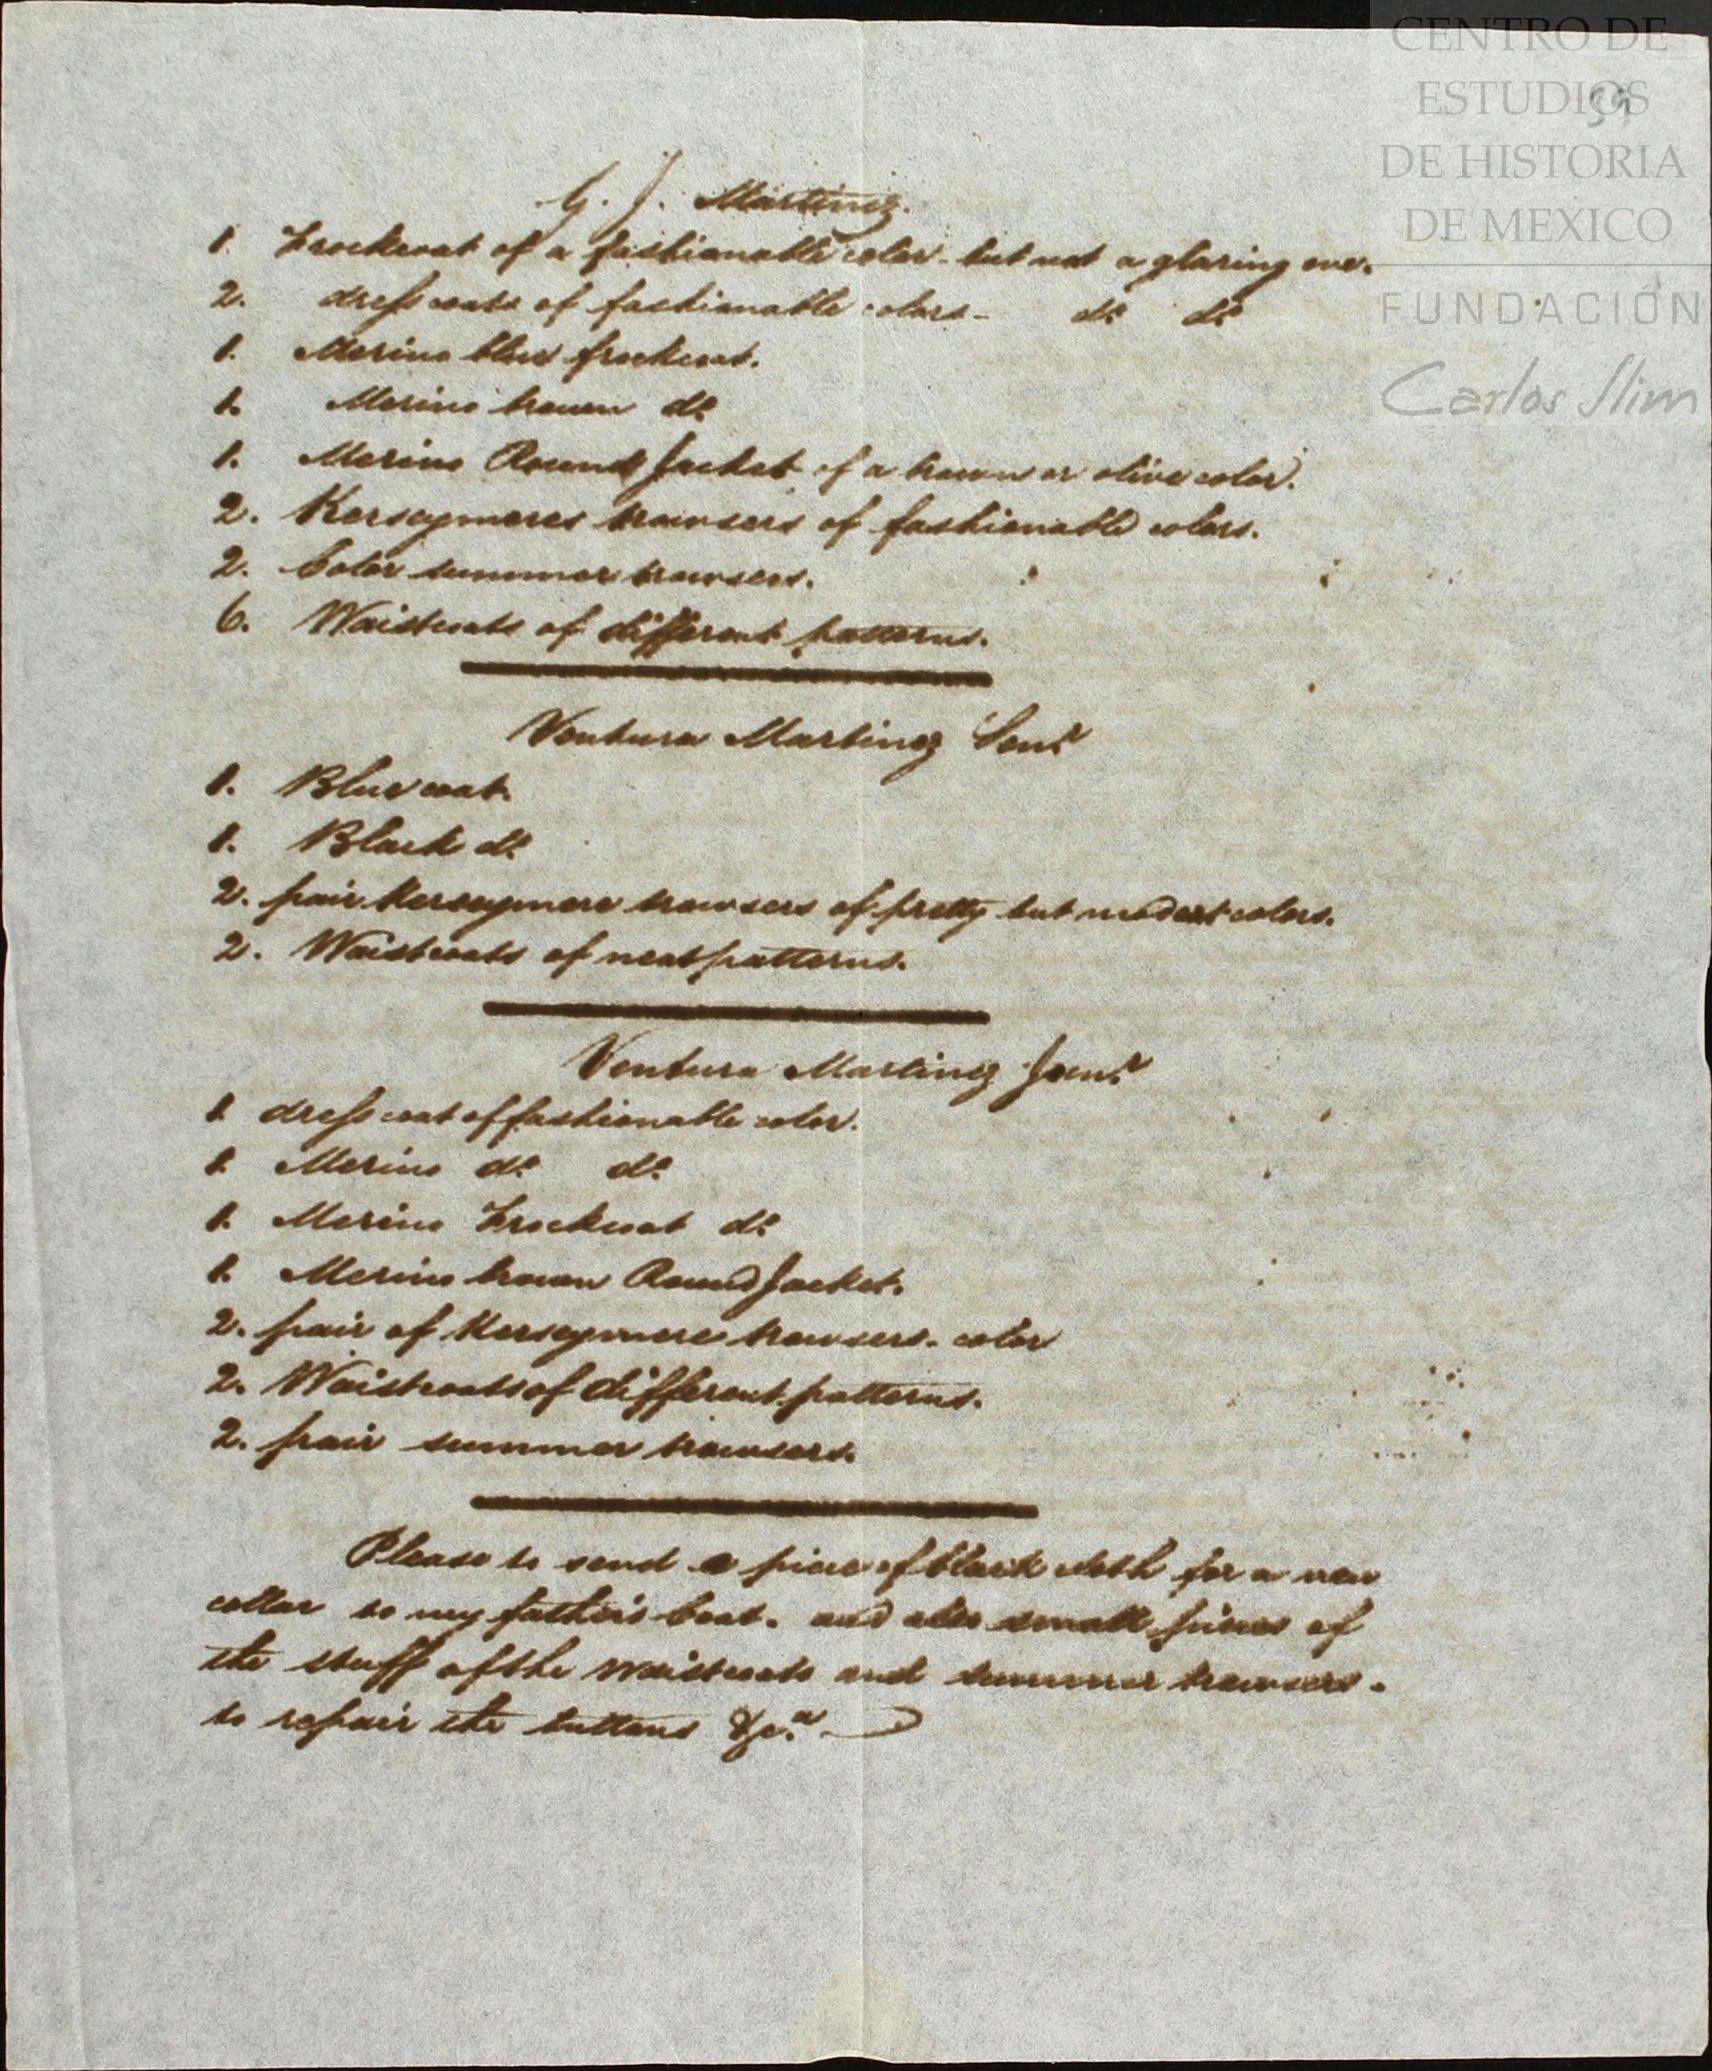 CENTRO DE
ESTUDIOS
DE HISTORIA
DE MEXICO
FUNDACIÓN
Carlos Slim
G. J. Martinez.
1. Frockcoat of a fashionable color - but not a glaring one.
2. dress coats of fashionable colors - do. do.
1. Merino blue frockcoat.
1. Merino brown do.
1. Merino Round Jacket of a brown or olive color.
2. Kerseymeres trowsers of fashionable colors.
2. Color summer trowsers.
6. Waistcoats of different patterns.
Ventura Martinez Senr.
1. Blue coat.
1. Black do.
2. pair Kerseymere trowsers of pretty but modest colors.
2. Waistcoats of neat patterns.
Ventura Martinez Junr.
1. dress coat of fashionable color.
1. Merino do. do.
1. Merino Frockcoat do.
1. Merino brown Round Jacket.
2. pair of Kerseymere trowsers - color
2. Waistcoats of different patterns.
2. pair summer trowsers.
Please to send a piece of black cloth for a new
collar to my father's Coat. and also small pieces of
the stuff of the waistcoats and summer trowsers -
to repair the buttons &ca.